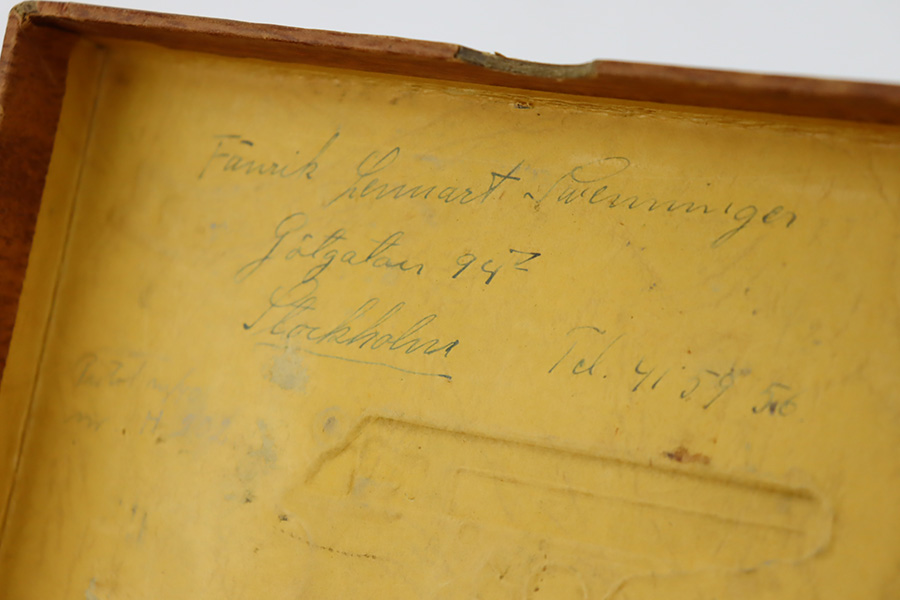 Fänrik Lennart Swenninger
Götgatan 94
Stockholm
Tel. 41 59 56